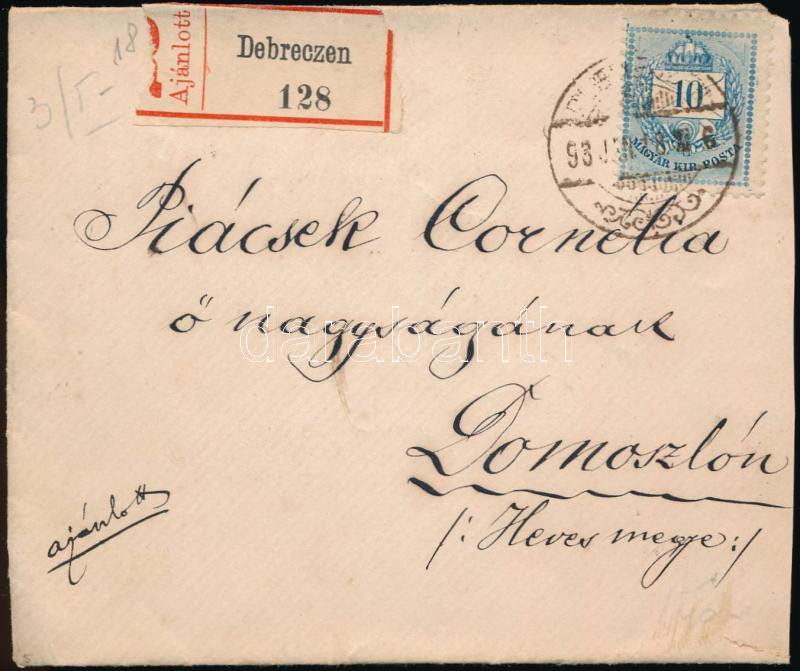 Ajánlott
Debreczen
128
3/I- 18
10
MAGYAR KIR. POSTA
93 JAN
Piácsek Cornélia
ő nagyságának
darabanth
Domoszlón
/: Heves megye :/
ajánlott